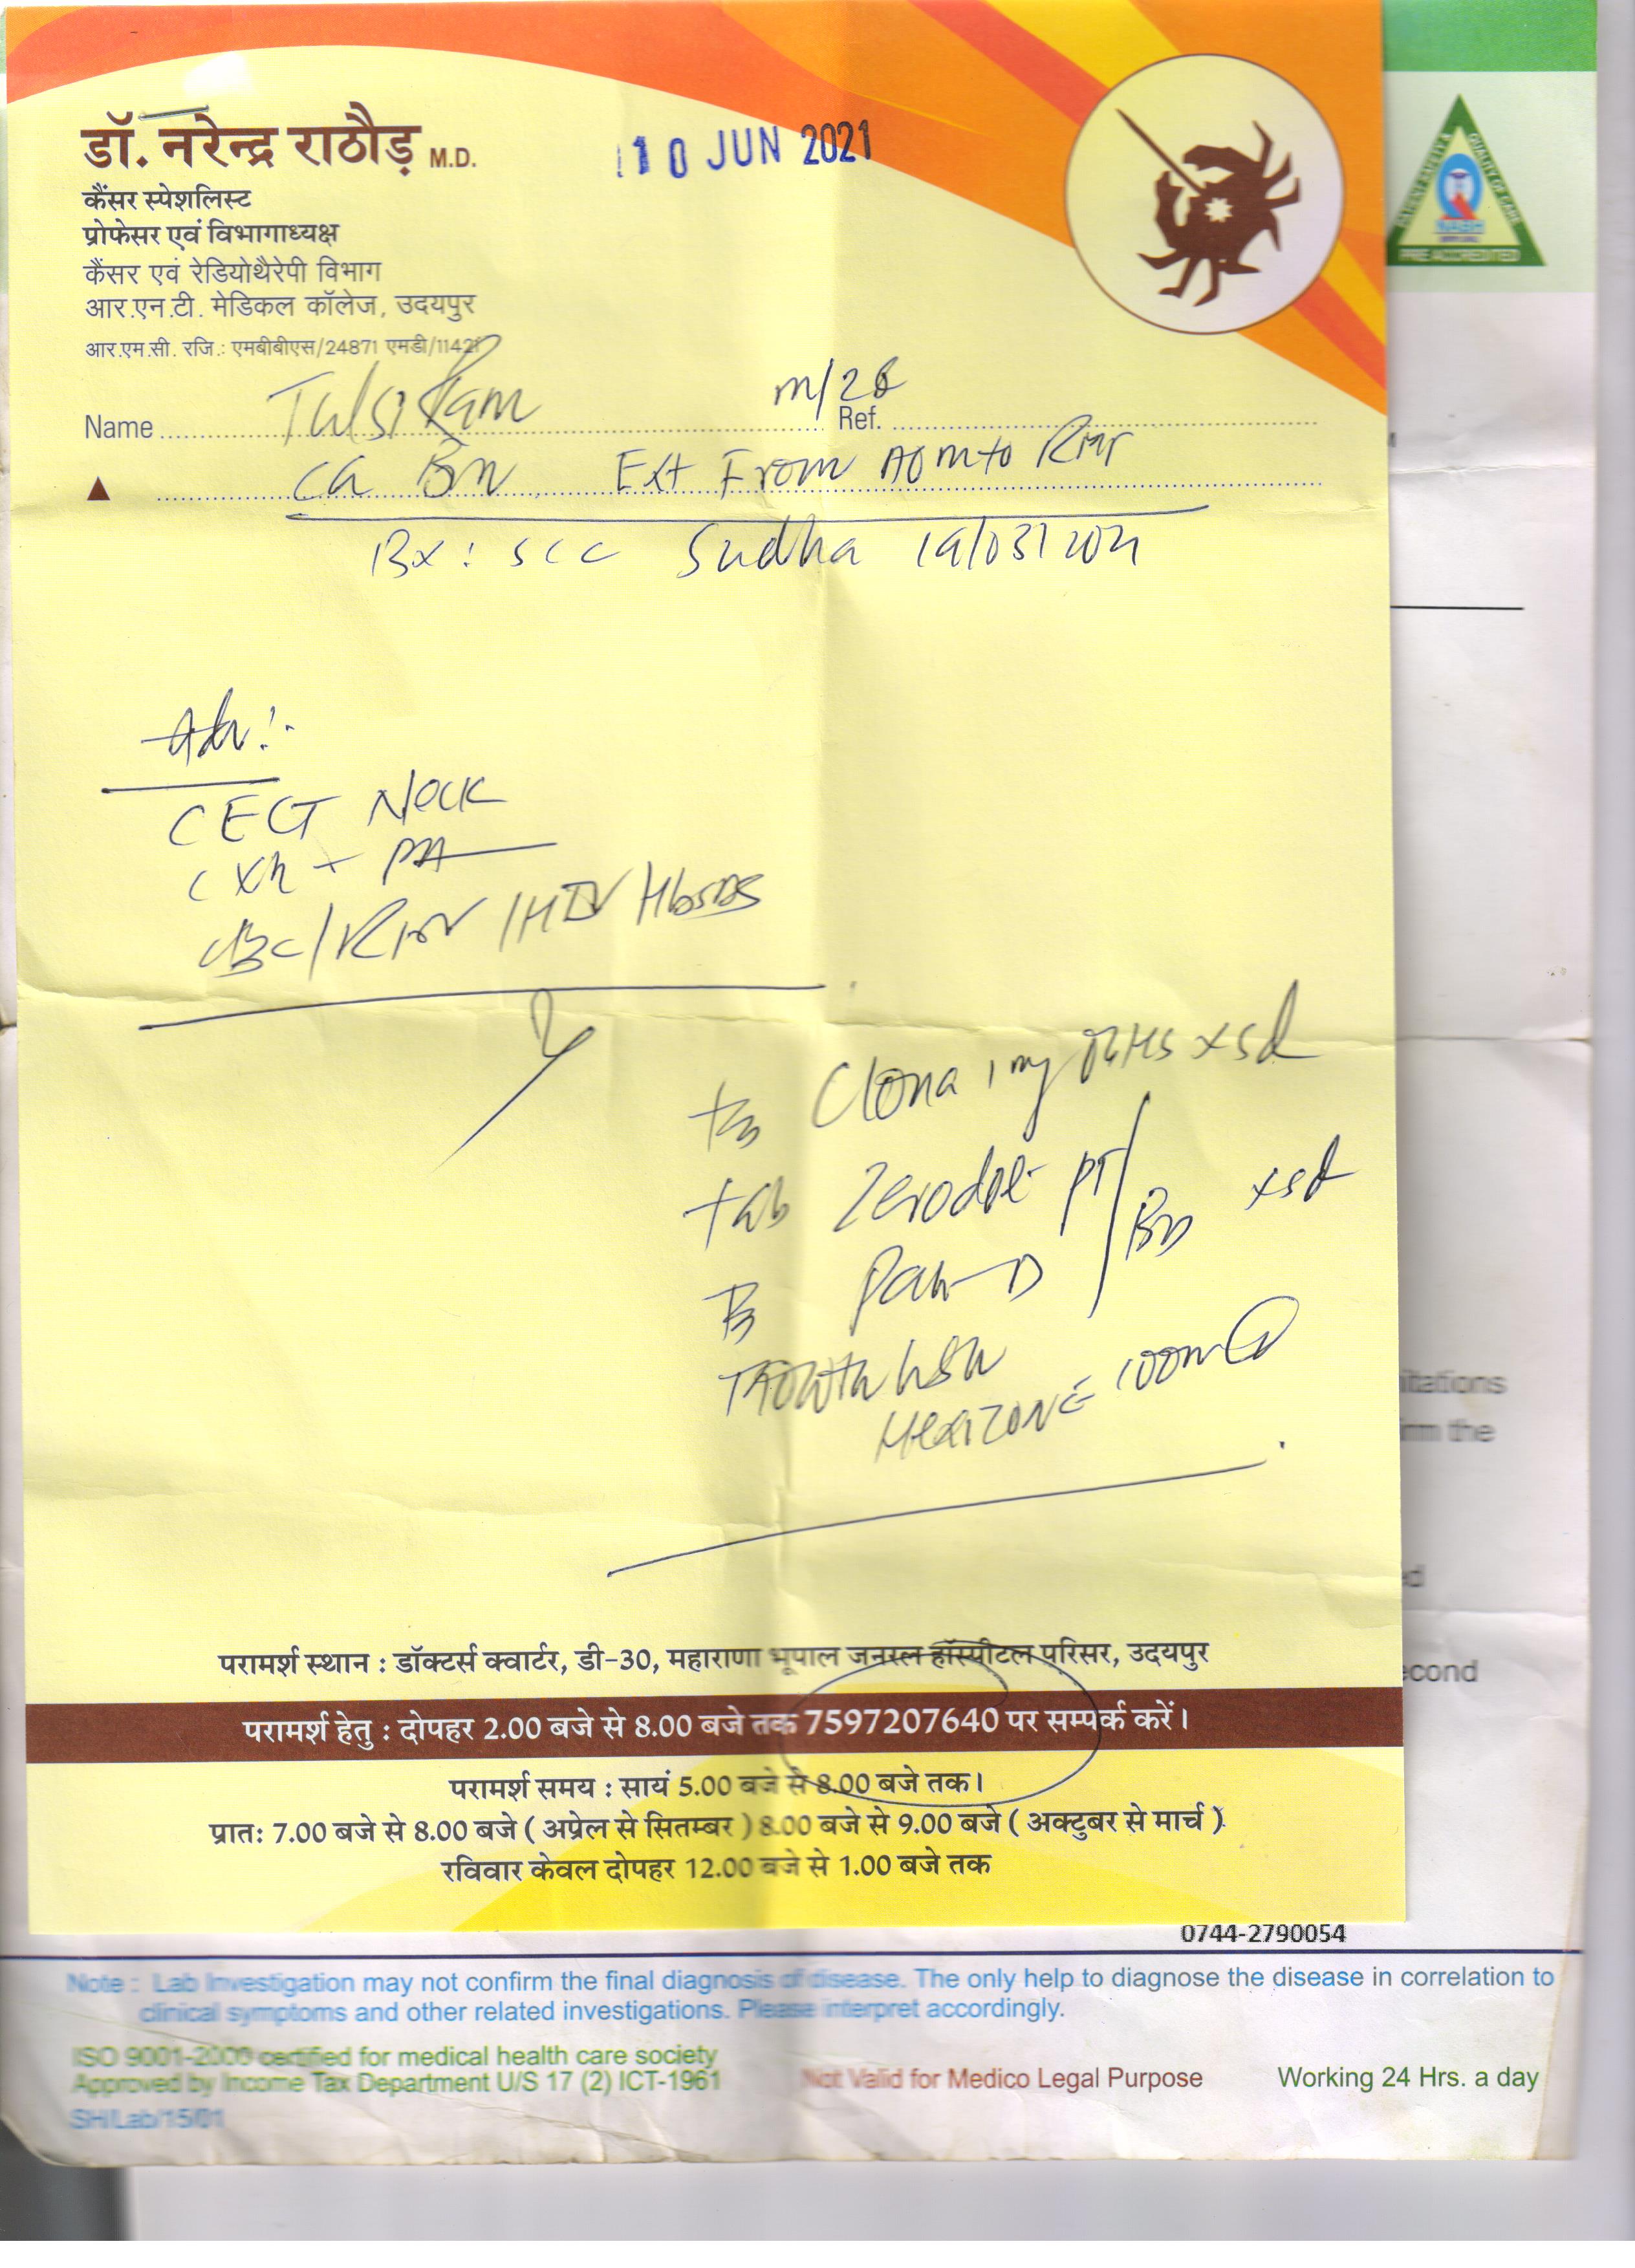 डॉ. नरेन्द्र राठौड़ M.D.
10 JUN 2021
कैंसर स्पेशलिस्ट
प्रोफेसर एवं विभागाध्यक्ष
कैंसर एवं रेडियोथैरेपी विभाग
आर.एन.टी. मेडिकल कॉलेज, उदयपुर
आर.एम.सी. रजि.: एमबीबीएस/24871 एमडी/11421
PRE ACCREDITED
Name Tulsi Ram M/28 Ref.
Ca Bm Ext From to RMT
Bx: SCC Sudha 19/03/2021
Adv:-
CECT Neck
CXR - PA
CBC/ /HIV
Clona 1 mg HS x 5d
tab Zerodol PT BD x 5d
Pan D
100ml
परामर्श स्थान : डॉक्टर्स क्वार्टर, डी-30, महाराणा भूपाल जनरल हॉस्पीटल परिसर, उदयपुर
परामर्श हेतु : दोपहर 2.00 बजे से 8.00 बजे तक 7597207640 पर सम्पर्क करें।
परामर्श समय : सायं 5.00 बजे से 8.00 बजे तक।
प्रातः 7.00 बजे से 8.00 बजे ( अप्रेल से सितम्बर ) 8.00 बजे से 9.00 बजे ( अक्टुबर से मार्च ).
रविवार केवल दोपहर 12.00 बजे से 1.00 बजे तक
itations
irm the
ed
econd
0744-2790054
Note : Lab Investigation may not confirm the final diagnosis of disease. The only help to diagnose the disease in correlation to
clinical symptoms and other related investigations. Please interpret accordingly.
ISO 9001-2000 certified for medical health care society
Approved by Income Tax Department U/S 17 (2) ICT-1961
Not Valid for Medico Legal Purpose
Working 24 Hrs. a day
SH/Lab/15/01